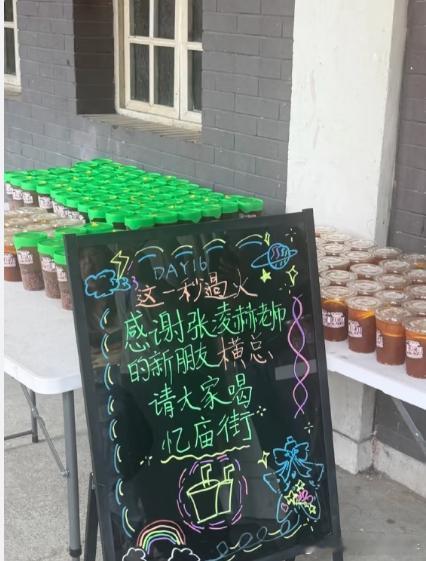 DAY16
这一秒過火
感谢张凌赫老师
的新朋友 横总
请大家喝
忆庙街